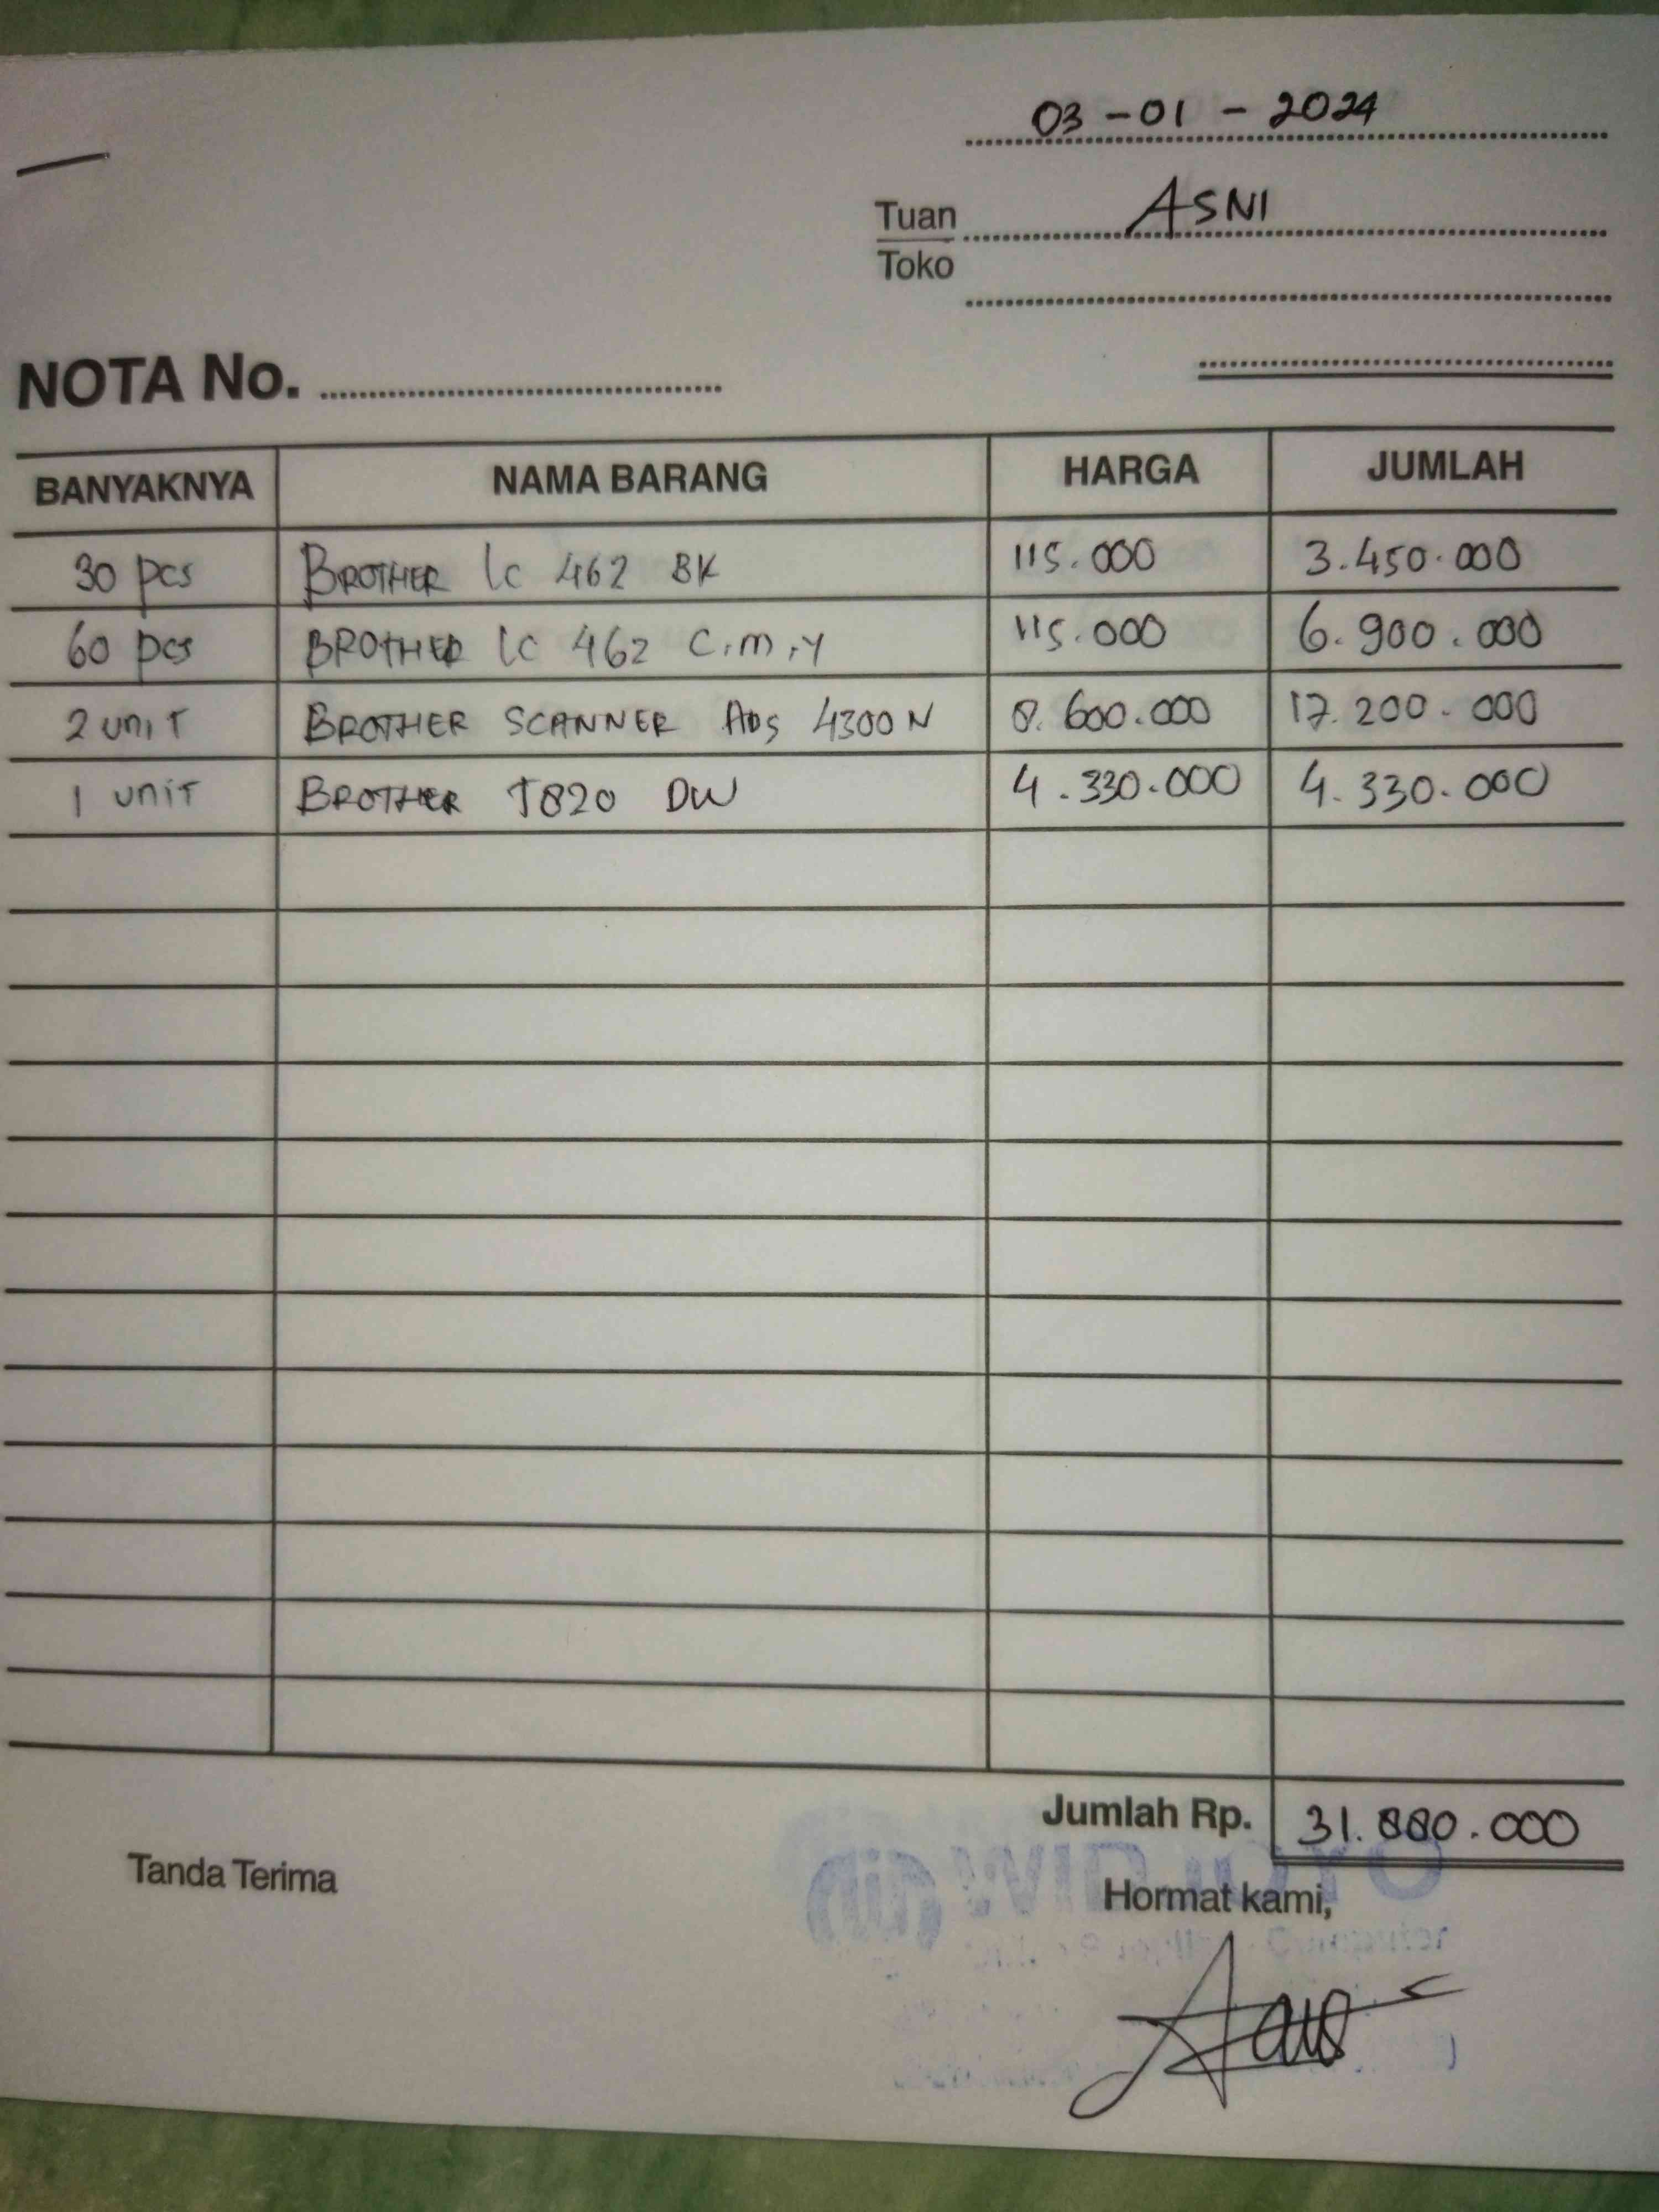 03-01-2024
Tuan ASNI
Toko
NOTA No.
BANYAKNYA NAMA BARANG HARGA JUMLAH
30 pcs BROTHER LC 462 BK 115.000 3.450.000
60 pcs BROTHER LC 462 C,M,Y 115.000 6.900.000
2 UNIT BROTHER SCANNER ADS 4300 N 8.600.000 17.200.000
1 UNIT BROTHER T820 DW 4.330.000 4.330.000
Jumlah Rp. 31.880.000
Tanda Terima
Hormat kami,